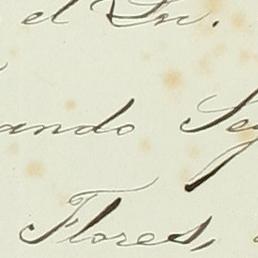 el Sr.
ando Seg
Flores,